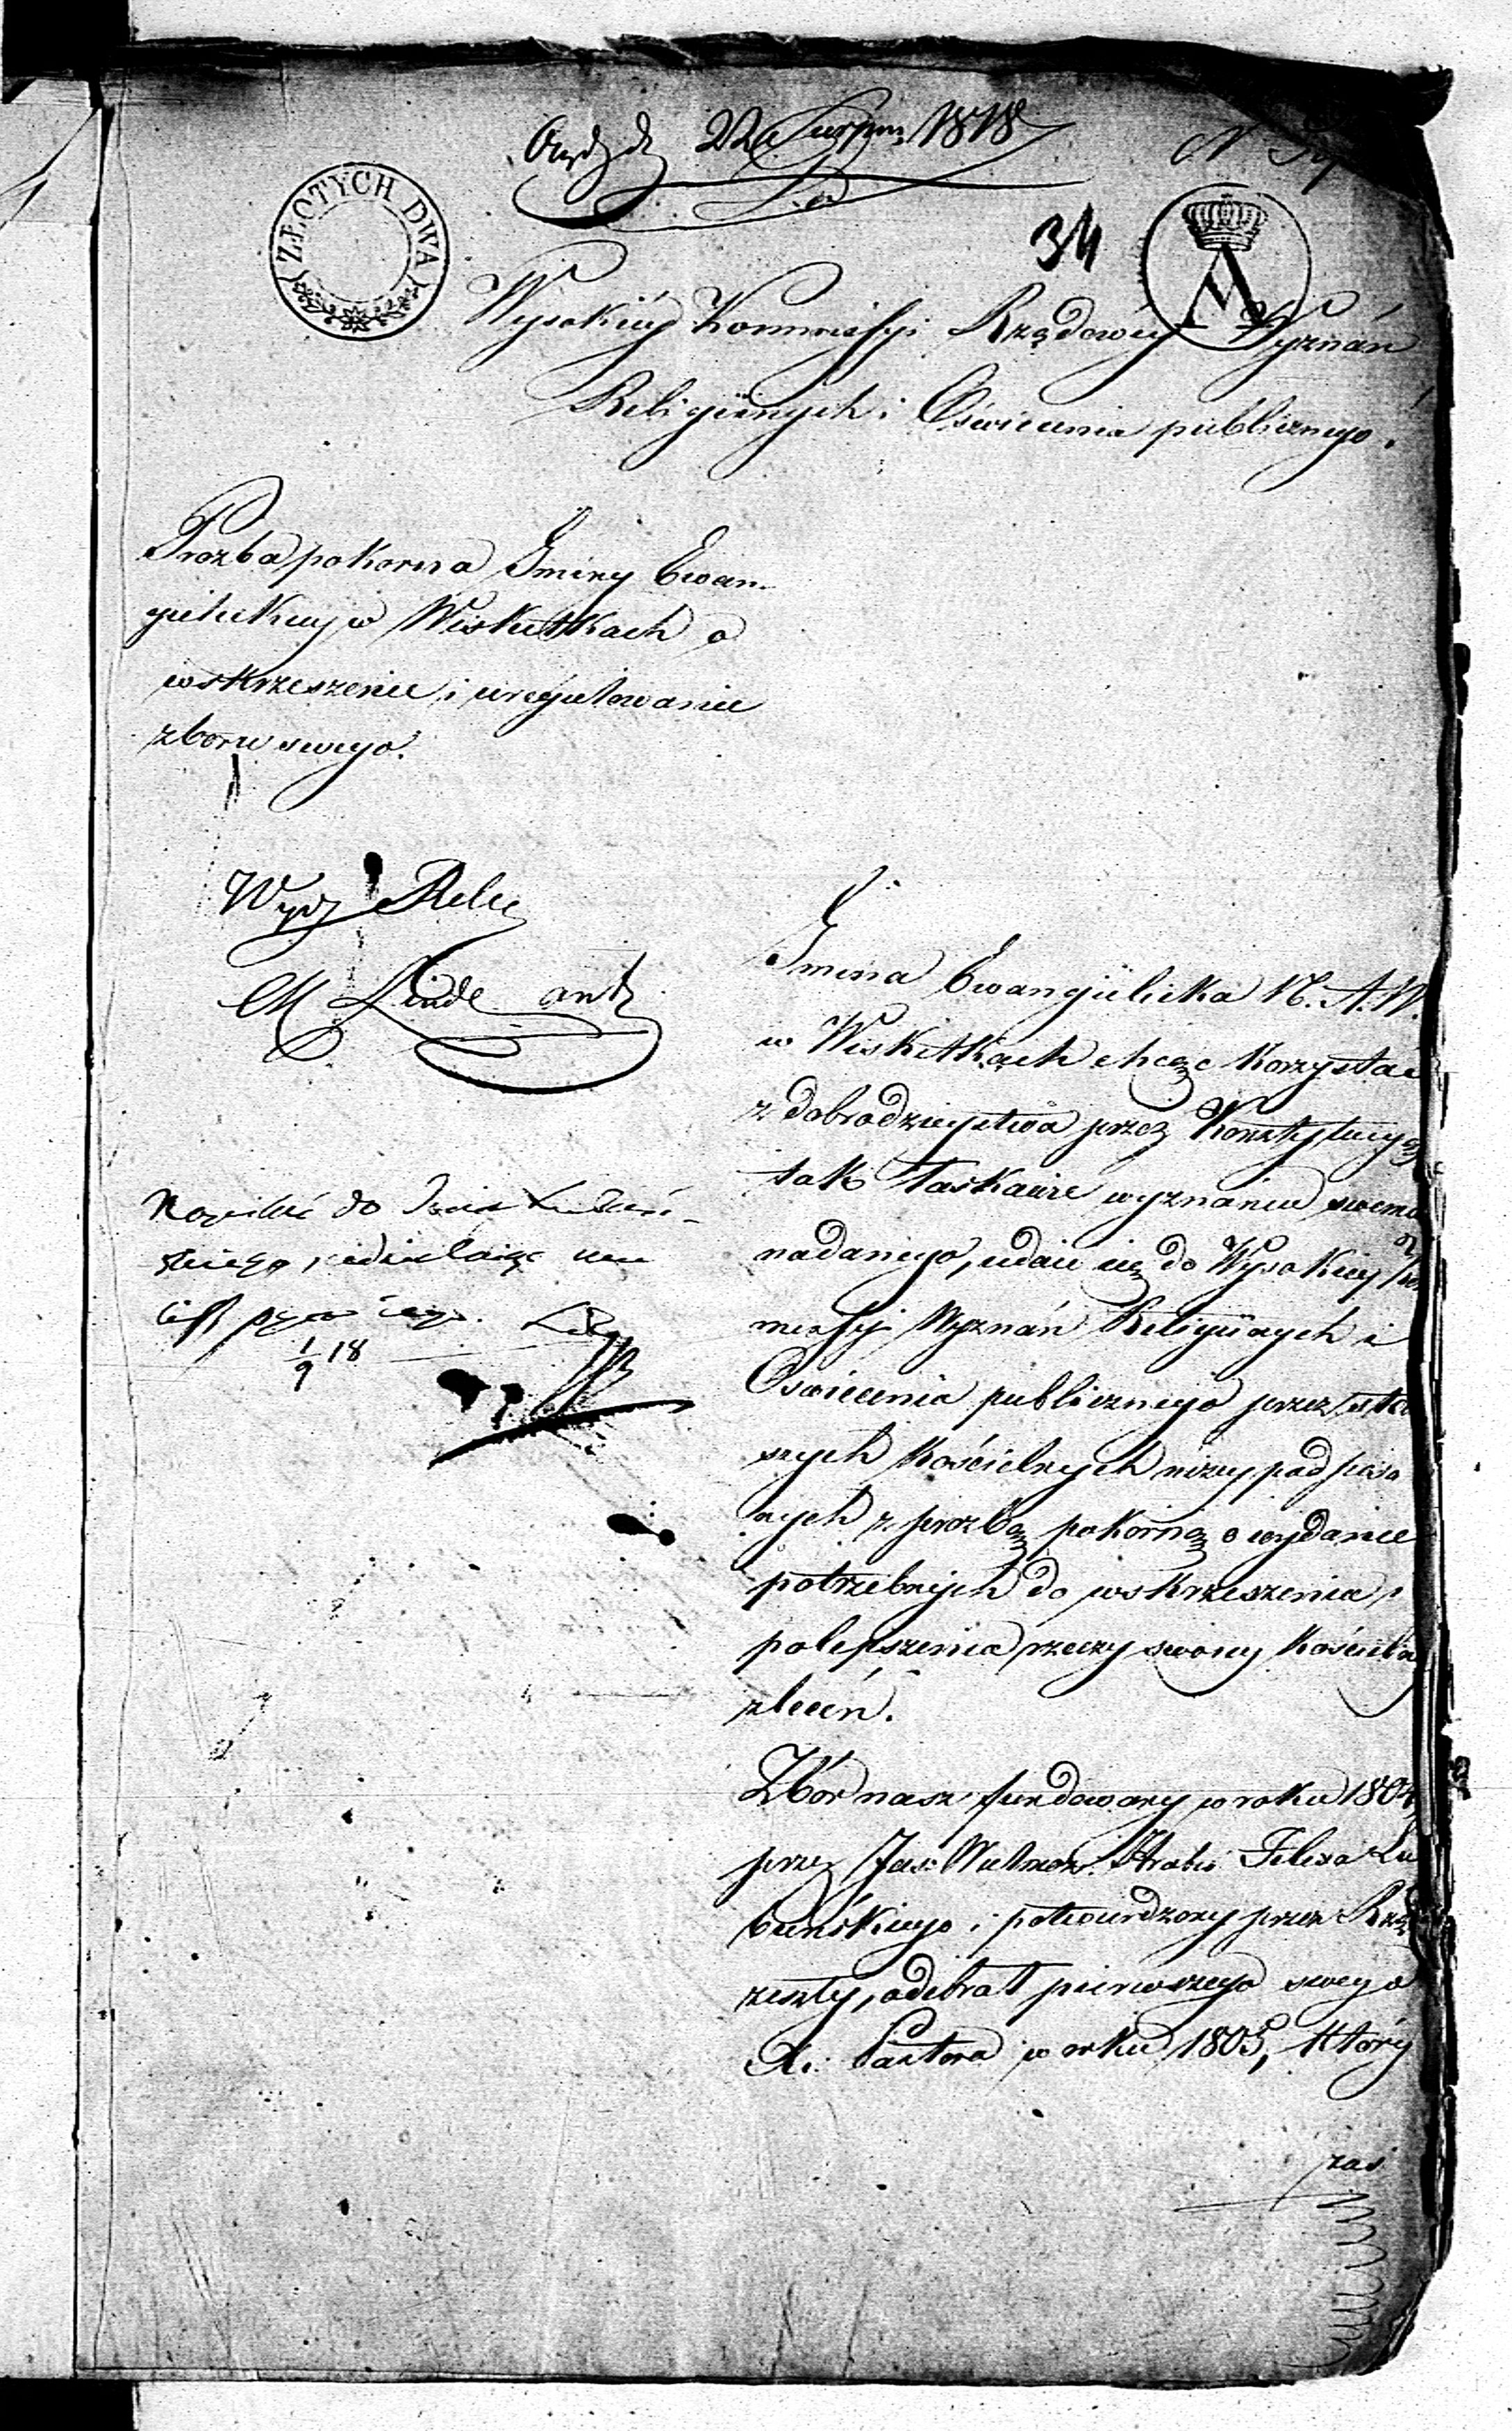 22 Sierpn. 1818
ZŁOTYCH DWA
34
Wysokiey Kommissyi Rządowey Wyznań
Religiinych i Oświecenia publicznego.
Prozba pokorna Gminy Ewan-
gielickiey w Wiskitkach o
wskrzeszenie i uregulowanie
zboru swego.
Wydz Relig
M Linde
Napisać do
1/9 18
Gmina Ewangielicka N. A. W.
w Wiskitkach chcąc korzystać
z dobrodzieystwa przez Konstytucyą
tak łaskawie wyznaniu swemu
nadanego, udaie się do Wysokiey Kom
missyi Wyznań Religiinych i
Oświecenia publicznego przez star
szych Kościelnych niżey podpisa
nych z prozbą pokorną o wydanie
potrzebnych do wskrzeszenia i
polepszenia rzeczy swoiey Kościelney
zleceń.
Zbór nasz fundowany w roku 180
przez Jaś: Wielmoż. Hrabię Felixa Lu
bieńskiego i potwierdzony przez Rząd
zeszły, odebrał pierwszego swego
X. Pastora w roku 1805, który
zaś